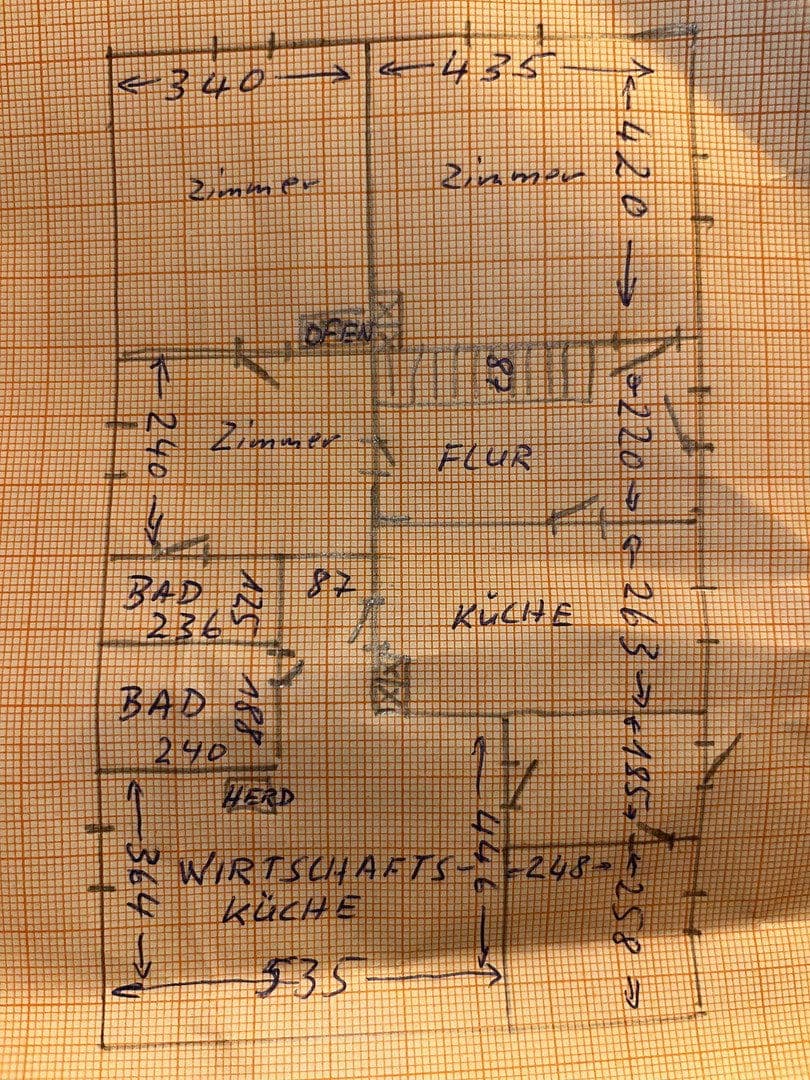 340
435
420
Zimmer
Zimmer
OFEN
87
220
240
Zimmer
FLUR
263
BAD
236
125
87
KÜCHE
BAD
240
188
185
HERD
364
446
WIRTSCHAFTS-
KÜCHE
248
258
535